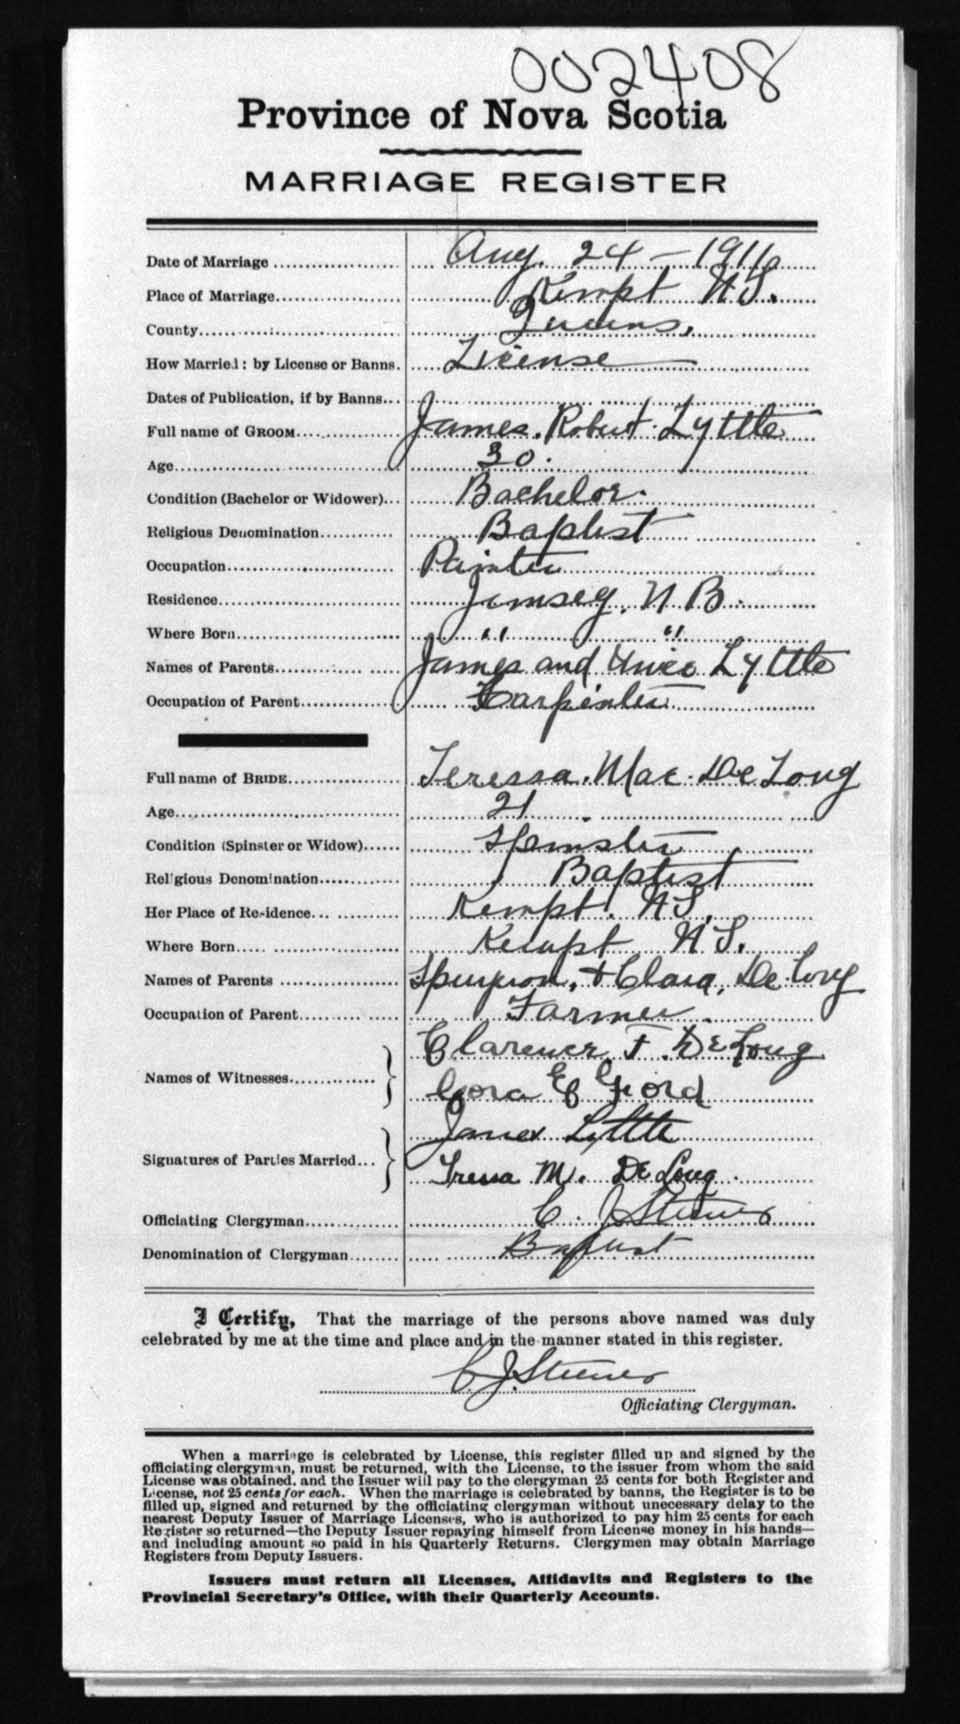 002408
Province of Nova Scotia
MARRIAGE REGISTER
Date of Marriage Aug. 24 - 1911
Place of Marriage Kempt N.S.
County Queens,
How Married: by License or Banns. License
Dates of Publication, if by Banns
Full name of GROOM James Robert Lyttle
Age 30.
Condition (Bachelor or Widower) Bachelor.
Religious Denomination Baptist
Occupation Painter
Residence Jemseg, N B.
Where Born " "
Names of Parents James and Lyttle
Occupation of Parent Carpenter
Full name of BRIDE Teressa Mae De Long
Age 21
Condition (Spinster or Widow) Spinster
Religious Denomination Baptist
Her Place of Residence Kempt. N.S.
Where Born Kempt N.S.
Names of Parents Spurgeon, & Clara, De Long
Occupation of Parent Farmer
Names of Witnesses Clarence F. DeLong
Cora E Ford
Signatures of Parties Married James Lyttle
Tressa M. DeLong
Officiating Clergyman C. J. Steeves
Denomination of Clergyman Baptist
I Certify, That the marriage of the persons above named was duly
celebrated by me at the time and place and in the manner stated in this register.
C. J. Steeves
Officiating Clergyman.
When a marriage is celebrated by License, this register filled up and signed by the
officiating clergyman, must be returned, with the License, to the issuer from whom the said
License was obtained, and the Issuer will pay to the clergyman 25 cents for both Register and
License, not 25 cents for each. When the marriage is celebrated by banns, the Register is to be
filled up, signed and returned by the officiating clergyman without unnecessary delay to the
nearest Deputy Issuer of Marriage Licenses, who is authorized to pay him 25 cents for each
Register so returned—the Deputy Issuer repaying himself from License money in his hands—
and including amount so paid in his Quarterly Returns. Clergymen may obtain Marriage
Registers from Deputy Issuers.
Issuers must return all Licenses, Affidavits and Registers to the
Provincial Secretary's Office, with their Quarterly Accounts.